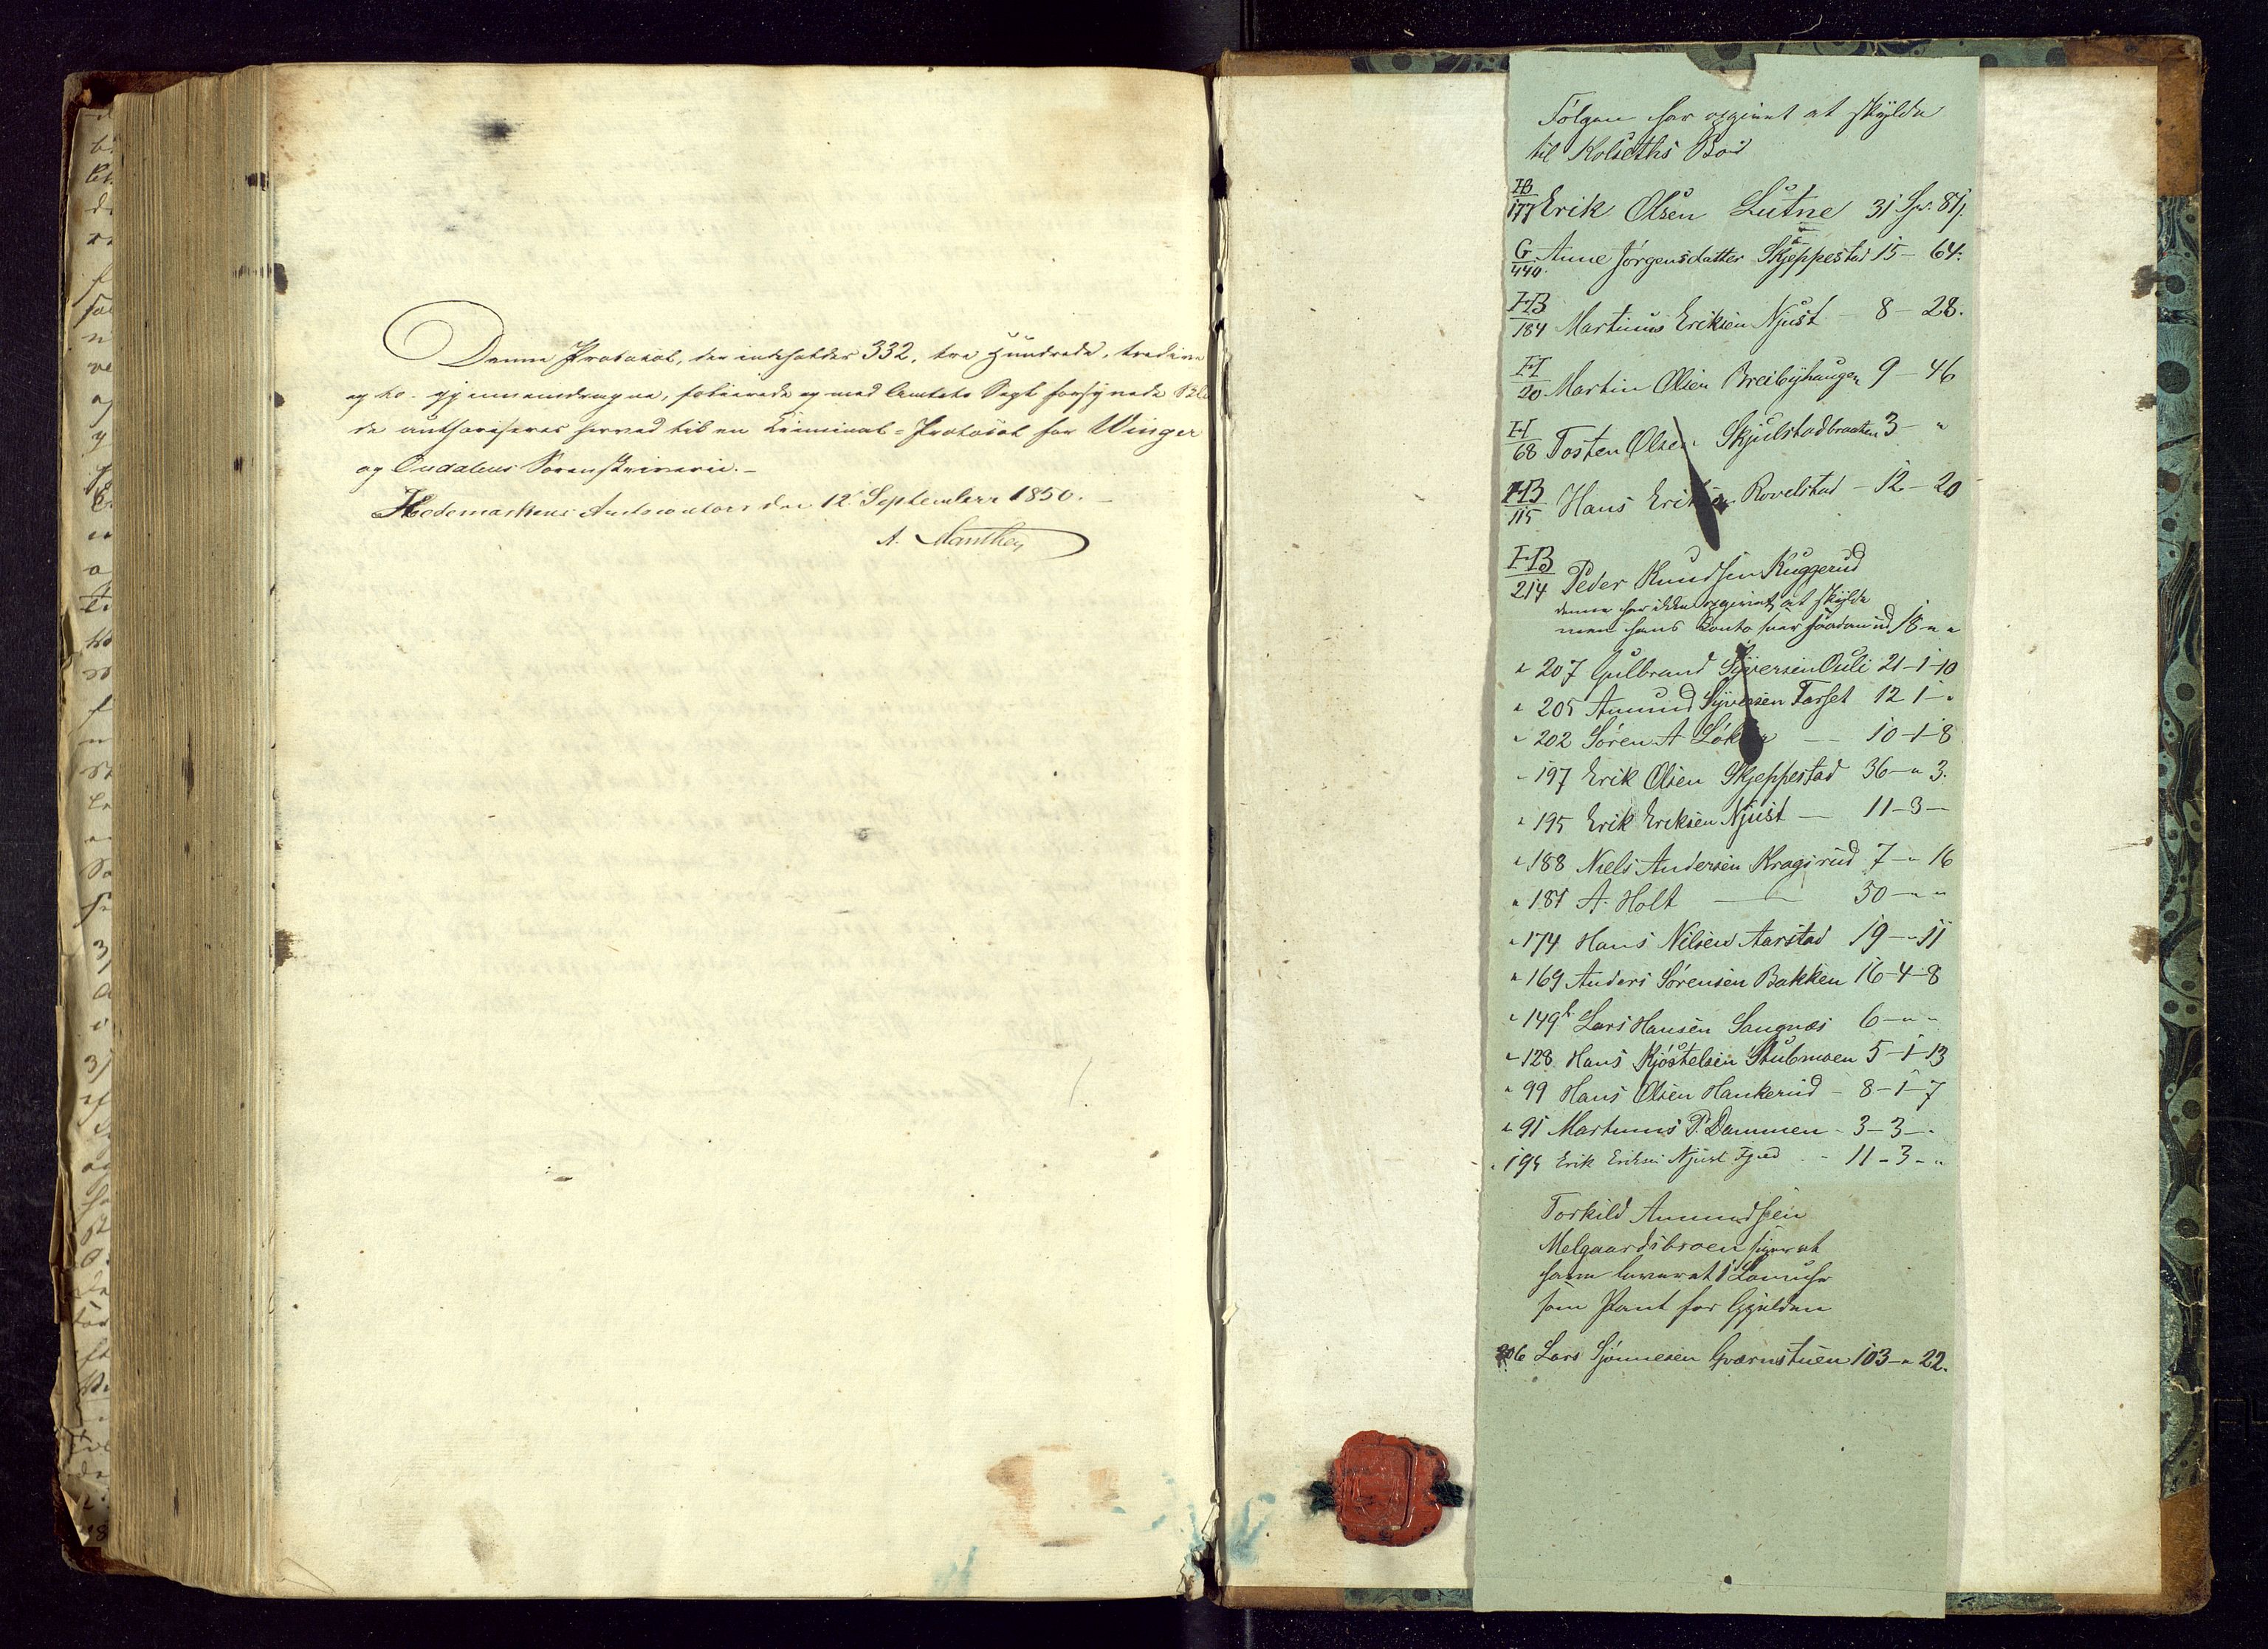 Denne Protokol, der indeholder 332, tre Hundrede, tredive
og to. gjennemdragne, folierede og med Amtets Segl forsynede Bla
de authoriseres herved til en Kriminal=Protokol for Winger
og Oudalens Sorenskriverie.-
Hedemarkens Amtscontoir den 12. September 1850.-
A. Manthey
Følgen har opgivet at skylde
til Kolseths Bod
HB
177 Erik Olsen Lutne 31 Sp. 81/.
G
440. Anne Jørgensdatter Skjeppestad 15 - 64.
HB
184 Martinus Eriksen Njust - 8 - 28.
H
20. Martin Olsen Breibyhaugen 9 - 46
H
68 Tosten Olsen Skjulstadbraaten 3 - "
HB
115 Hans Eriksen Rovelstad - 12 - 20
HB
214 Peder Knudsen Kuggerud
denne har ikke opgivet at skylde
men hans Conto saadan ud 18 " "
" 207 Gulbrand Syversen Ouli 21-1-10
" 205 Amund Syversen Farset 12 1 - "
" 202 Søren A Løken - 10-1-8
" 197 Erik Olsen Skjeppestad 36 - " 3.
" 195 Erik Eriksen Njust - 11-3-
" 188 Niels Andersen Kragsrud 7 - " 16
" 181 A. Holt - 50 - " "
" 174 Hans Nilsen Aarstad 19 - " 11
" 169 Anders Sørensen Bakken 16-4-8
" 149 Lars Hansen Sangnæs 6 - " "
" 128 Hans Kjøstelsen Stubmoen 5-1-13
" 99 Hans Olsen Hankerud - 8-1-7
" 91 Martinus P. Dammen - 3-3-"
" 195 Erik Eriksen Njust - 11-3-"
Torkild Amundsen
Melgaardsbroen siger at
have leveret 1 Lommeuhr
som Pant for Gjælden
206 Lars Sjønnesen Qværnstuen 103 - " 22.